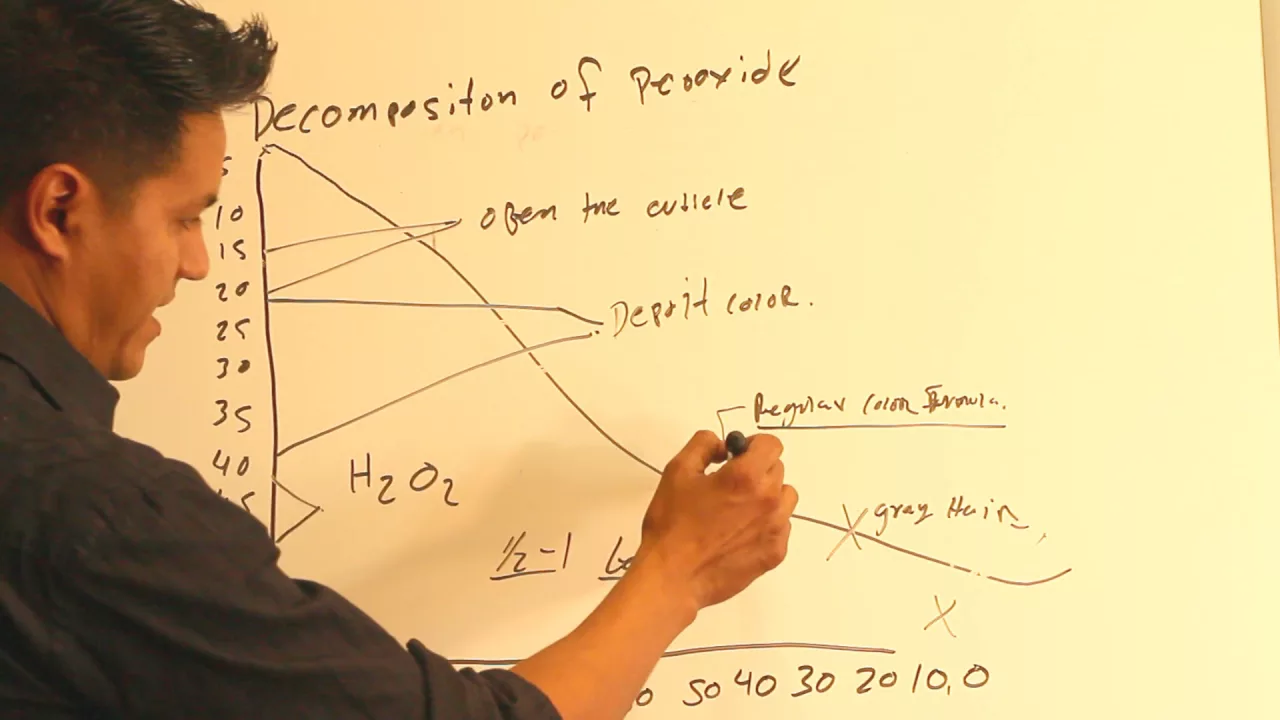 Decompositon of Peroxide
5
10
15
20
25
30
35
40
open the cuticle
Deposit color.
Regular color Formula.
H2O2
gray Hair
1/2 - 1
50 40 30 20 10, 0